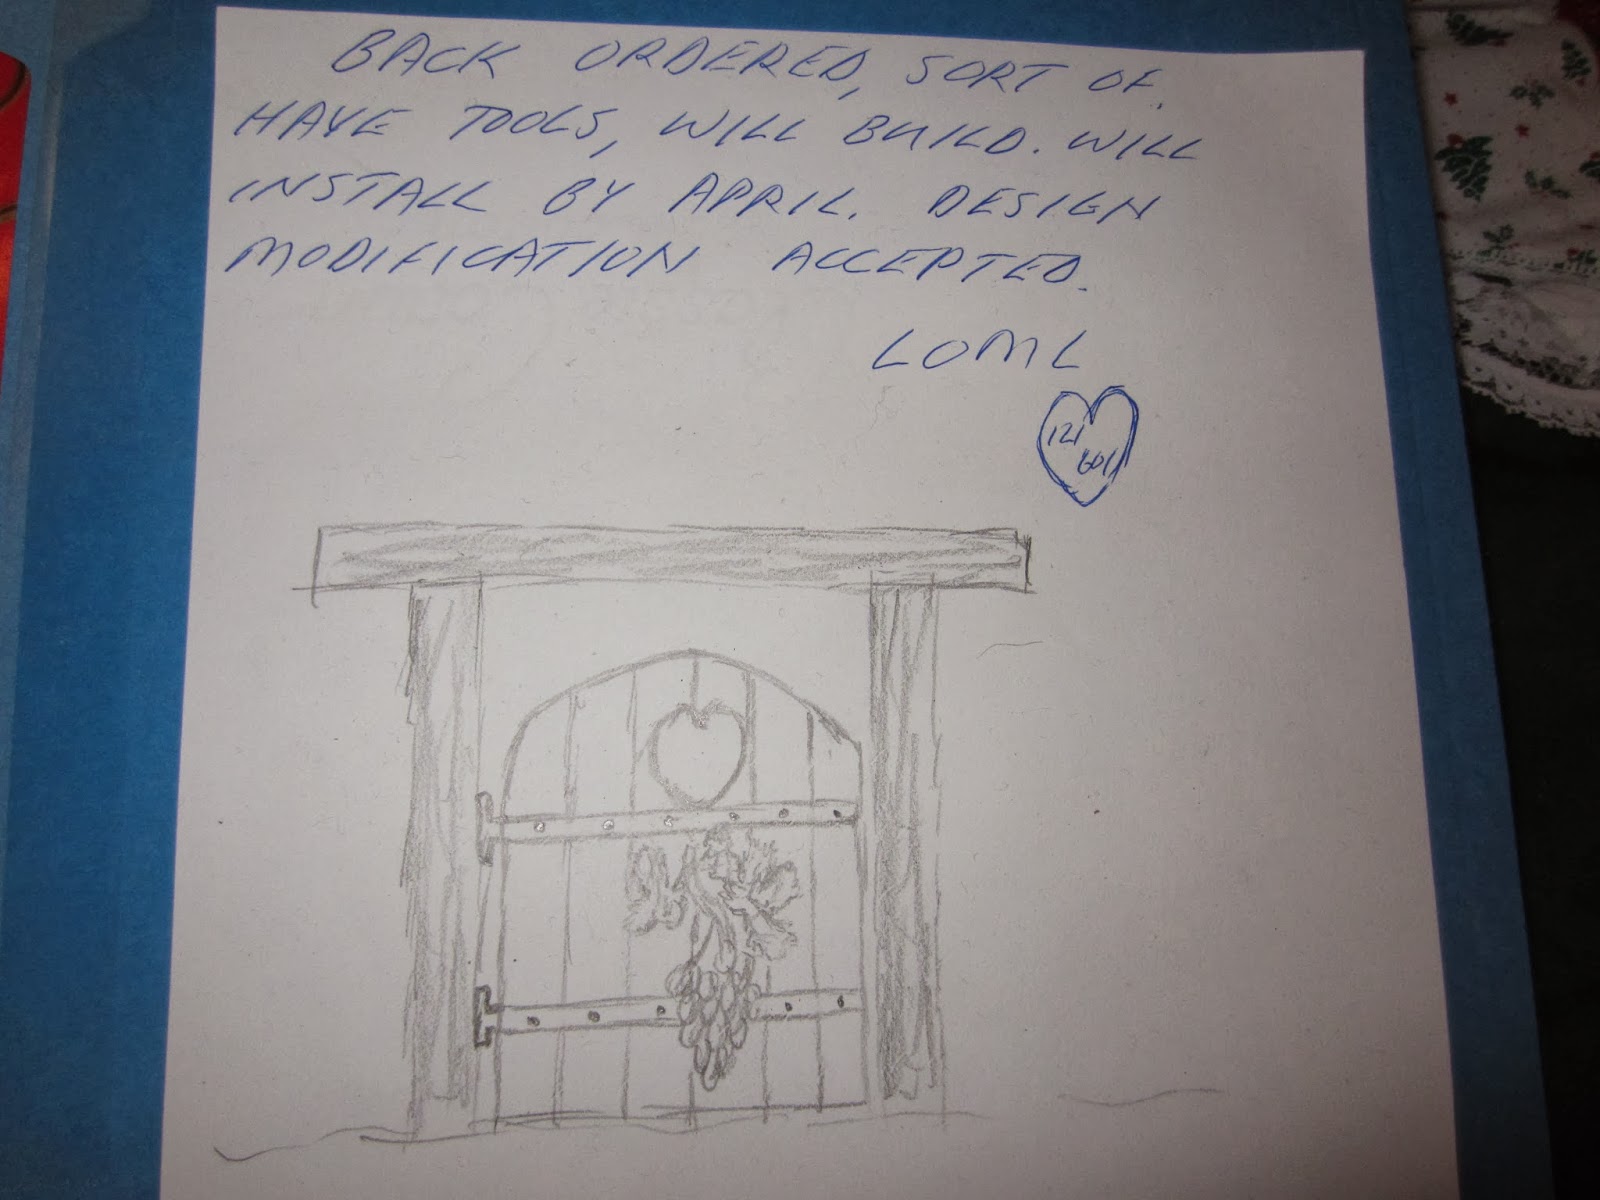 BACK ORDERED, SORT OF.
HAVE TOOLS, WILL BUILD. WILL
INSTALL BY APRIL. DESIGN
MODIFICATION ACCEPTED.
LOML
121